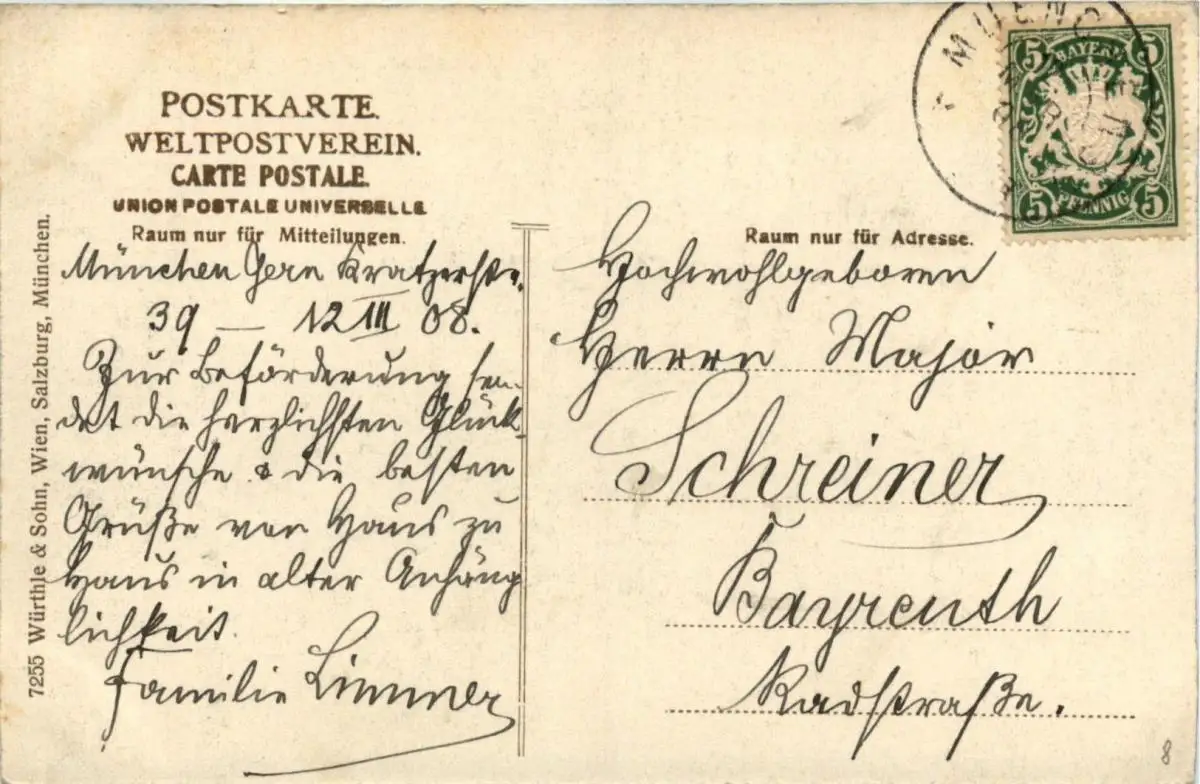 POSTKARTE.
WELTPOSTVEREIN.
CARTE POSTALE.
UNION POSTALE UNIVERSELLE
Raum nur für Mitteilungen.
München Gern Kratzerstr.
39 — 12 III 08.
Zur Beförderung sen-
det die herzlichsten Glück-
wünsche & die besten
Grüße von Haus zu
Haus in alter Anhäng
lichkeit.
Familie Limmer
7255 Würthle & Sohn, Wien, Salzburg, München.
MUENC
5 BAYERN 5
5 PFENNIG 5
Raum nur für Adresse.
Hochwohlgeboren
Herrn Major
Schreiner
Bayreuth
Radstraße.
8